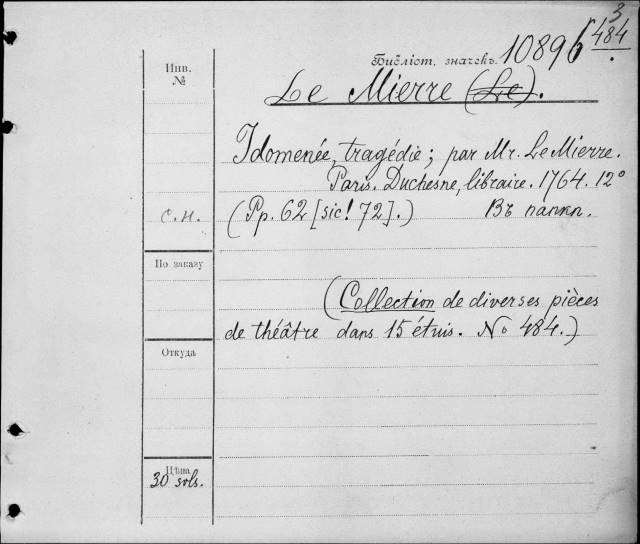 3
484
Библіот. значекъ. 10896
Инв.
№
Le Mierre (Le).
Idomenée, tragédie; par Mr. Le Mierre.
Paris. Duchesne, libraire. 1764. 12°
С.Н. (Pp. 62 [sic! 72].) Въ папкѣ.
По заказу
(Collection de diverses pièces
de théâtre dans 15 étuis. No 484.)
Откуда
Цѣна
30 sols.